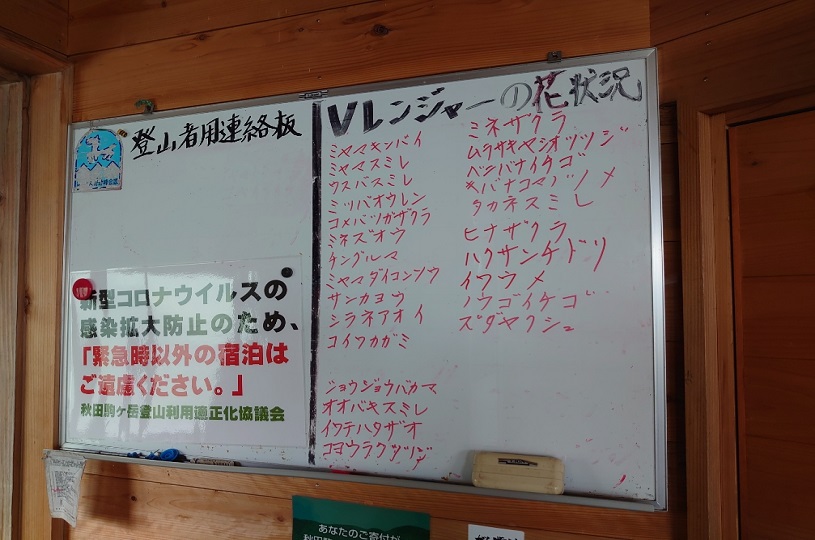 登山者用連絡板
新型コロナウイルスの
感染拡大防止のため、
「緊急時以外の宿泊は
ご遠慮ください。」
秋田駒ヶ岳登山利用適正化協議会
Vレンジャーの花状況
ミヤマキンバイ
ミヤマスミレ
ウスバスミレ
ミツバオウレン
コメバツガザクラ
ミネズオウ
チングルマ
ミヤマダイコンソウ
サンカヨウ
シラネアオイ
コイワカガミ
ジョウジョウバカマ
オオバキスミレ
イワテハタザオ
コヨウラクツツジ
ミネザクラ
ムラサキヤシオツツジ
ベニバナイチゴ
キバナコマノツメ
タカネスミレ
ヒナザクラ
ハクサンチドリ
イワウメ
ノウゴイチゴ
ズダヤクシュ
あなたのご寄付が